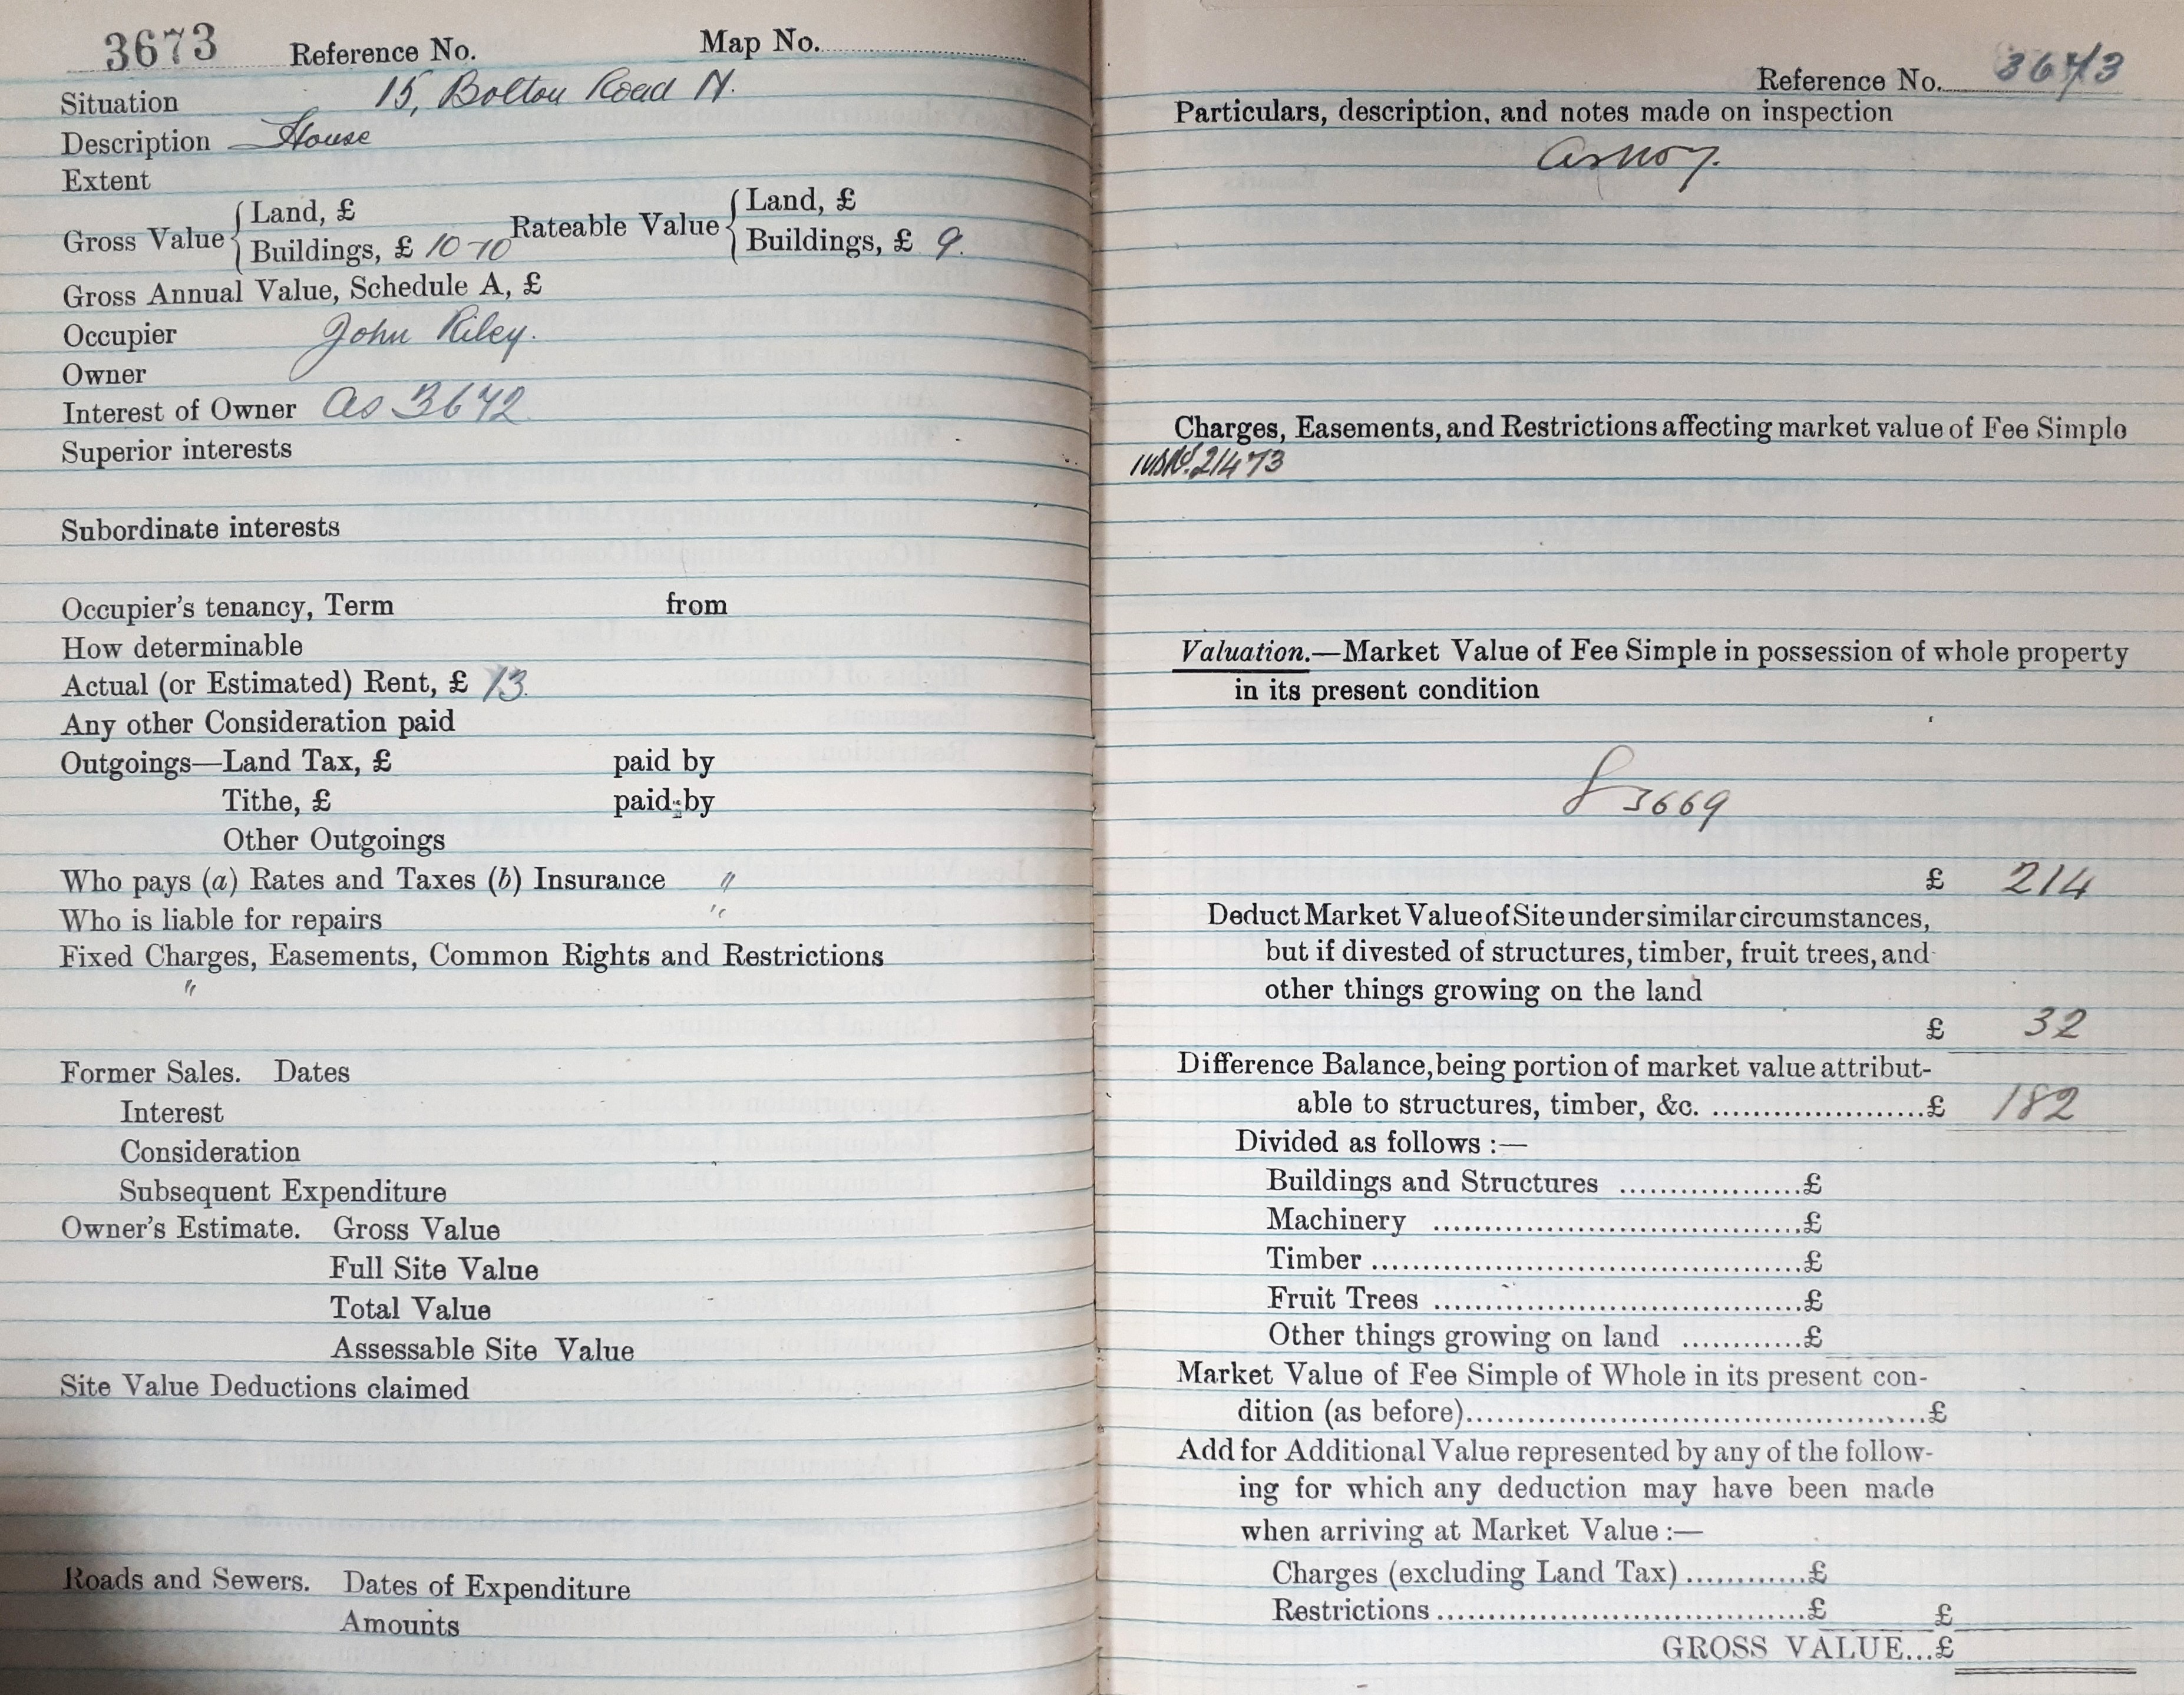 3673 Reference No. Map No.
Situation 15, Bolton Road N.
Description House
Extent
Gross Value { Land, £
Buildings, £ 10-10
Rateable Value { Land, £
Buildings, £ 9.
Gross Annual Value, Schedule A, £
Occupier John Riley.
Owner
Interest of Owner as 3642
Superior interests
Subordinate interests
Occupier's tenancy, Term from
How determinable
Actual (or Estimated) Rent, £ 13
Any other Consideration paid
Outgoings—Land Tax, £ paid by
Tithe, £ paid by
Other Outgoings
Who pays (a) Rates and Taxes (b) Insurance "
Who is liable for repairs "
Fixed Charges, Easements, Common Rights and Restrictions
"
Former Sales. Dates
Interest
Consideration
Subsequent Expenditure
Owner's Estimate. Gross Value
Full Site Value
Total Value
Assessable Site Value
Site Value Deductions claimed
Roads and Sewers. Dates of Expenditure
Amounts
Reference No. 3673
Particulars, description, and notes made on inspection
Charges, Easements, and Restrictions affecting market value of Fee Simple
21473
Valuation.—Market Value of Fee Simple in possession of whole property
in its present condition
3669
£ 214
Deduct Market Value of Site under similar circumstances,
but if divested of structures, timber, fruit trees, and
other things growing on the land
£ 32
Difference Balance, being portion of market value attribut-
able to structures, timber, &c. ....................£ 182
Divided as follows :—
Buildings and Structures ..................£
Machinery ....................................£
Timber ..........................................£
Fruit Trees ....................................£
Other things growing on land ............£
Market Value of Fee Simple of Whole in its present con-
dition (as before)..............................................£
Add for Additional Value represented by any of the follow-
ing for which any deduction may have been made
when arriving at Market Value :—
Charges (excluding Land Tax) ............£
Restrictions ....................................£ £
GROSS VALUE...£